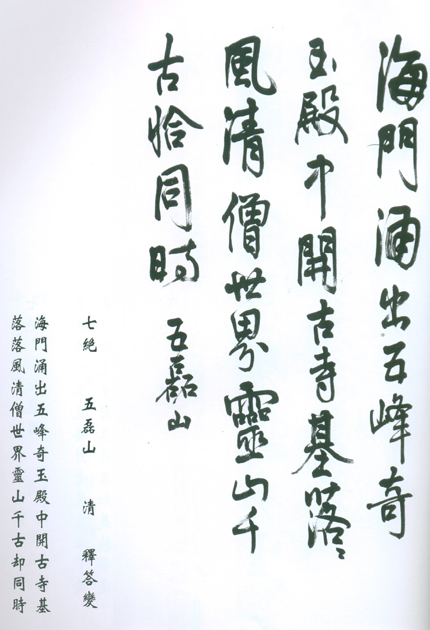 海門涌出五峰奇
玉殿中開古寺基落〻
風清僧世界靈山千
古恰同時 五磊山
七絶 五磊山 清 釋答變
海門涌出五峰奇玉殿中開古寺基
落落風清僧世界靈山千古却同時